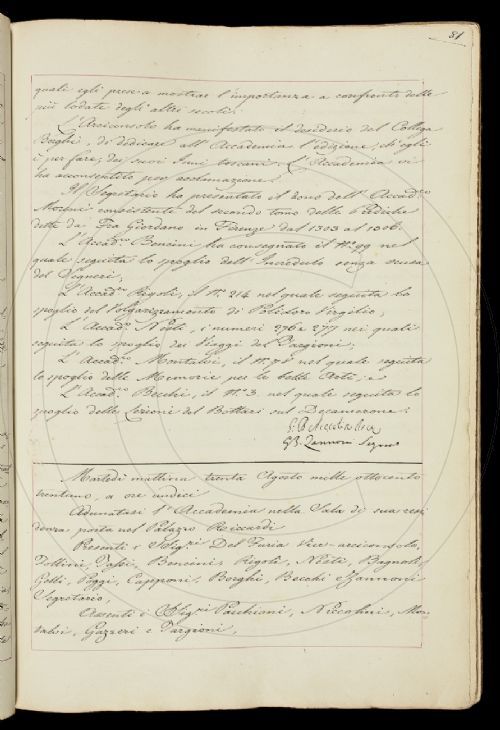 81
quali egli prese a mostrar l'importanza a confronto delle
più lodate degli altri secoli.
L'Arciconsolo ha manifestato il desiderio del Collega
Borghi, di dedicare all'Accademia l'edizione, ch'egli
è per fare, dei suoi Inni toscani. L'Accademia vi
ha acconsentito per acclamazione.
Il Segretario ha presentato il dono dell'Accad.co
Moreni consistente del secondo tomo delle Prediche
dette da Fra Giordano in Firenze dal 1303 al 1306.
L'Accad.co Bencini ha consegnato il N.o 99 nel
quale seguita lo spoglio dell'Incredulo senza scusa
del Segneri;
L'Accad.co Rigoli, il N. 214 nel quale seguita lo
spoglio del Volgarizzamento di Polidoro Virgilio;
L'Accad.co Nesti, i numeri 276 e 277 nei quali
seguita lo spoglio dei Viaggi del Targioni;
L'Accad.co Montalvi, il N. 78 nel quale seguita
lo spoglio delle Memorie per le belle Arti; e
L'Accad.co Becchi, il N.o 3. nel quale seguita lo
spoglio delle Lezioni del Bottari sul Decamerone.
G. B. Niccolini
G. B. Zannoni Segr.
Martedì mattina trenta Agosto mille ottocento
trentuno, a ore undici
Adunatasi l'Accademia nella Sala di sua resi
denza posta nel Palazzo Riccardi
Presenti i Sig.ri Del Furia Vice-arciconsolo,
Follini, Bencini, Rigoli, Nesti, Bagnoli,
Gelli, Poggi, Capponi, Borghi, Becchi e Zannoni
Segretario,
Assenti i Sig.ri Paschioni, Niccolini, Mon
talvi, Gazzeri e Targioni,